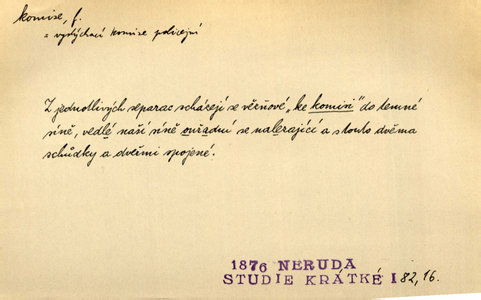 komise, f.
= vyslýchací komise policejní
Z jednotlivých separac scházejí se věrňové „ke komisi" do temné
síně, vedlé naší síně ouřadní se nalezající a s touto dvěma
schůdky a dveřmi spojené.
1876 NERUDA
STUDIE KRÁTKÉ I 82,16.